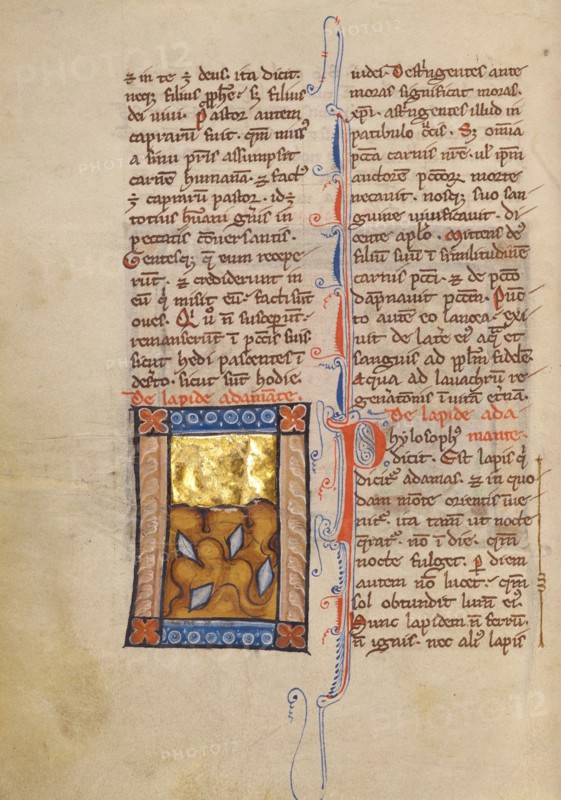 ⁊ in te ÷ deus. ita dicit.
neqꝫ filius ꝓphe. sꝫ filius
dei uiui. Pastor autem
caprarum fuit. qm̄ miss᷒
a sinu pr̄is assumpsit
carnē humanā. ⁊ fact᷒
÷ caprarū pastor. id÷
totius hūani gn̄is in
peccatis cōuersantis.
Gentesqꝫ q̄ eum recepe
rūt. ⁊ crediderunt in
eū q̄ misit eū. facti sūt
oues. Qͥ ū n̄ susceperūt.
remanserūt ī pccīs suis
sicut hedi pascentes ī
deserto. sicut sūt hodie.
De lapide adamāte.
uidei. Destringentes ante
moras significat moras.
xp̄i. astringentes illud in
patibulo crucis. Sꝫ omīa
pccā carnis nr̄e. ul ip̄m
auctorē pccōꝝ morte
necauit. nosqꝫ suo san
guine uiuificauit. di
cente ap̄lo. Mittens de᷒
filiū suū ī similitudinē
carnis pccī. ⁊ de pccō
dāpnauit pccm̄. Pūc
to autē eo lancea. exi
uit de latere ei᷒ aq̄ et
sanguis ad pplm̄ fidelē.
Aqua ad lauachrū re
generationis ī uitā etnā.
De lapide ada
mante.
Phylosoph᷒
dicit. Est lapis qͥ
dicit᷑ adamas. ⁊ in quo
dam mōte orientis inue
nit᷑. ita tam̄ ut nocte
q̄rat᷑. nō ī die. qm̄
nocte fulget. ꝑ diem
autem nō lucet. qm̄
sol obtundit lum̄ ei᷒.
Hunc lapidem n̄ ferrū.
n̄ ignis. nec ali᷒ lapis
PHOTO12